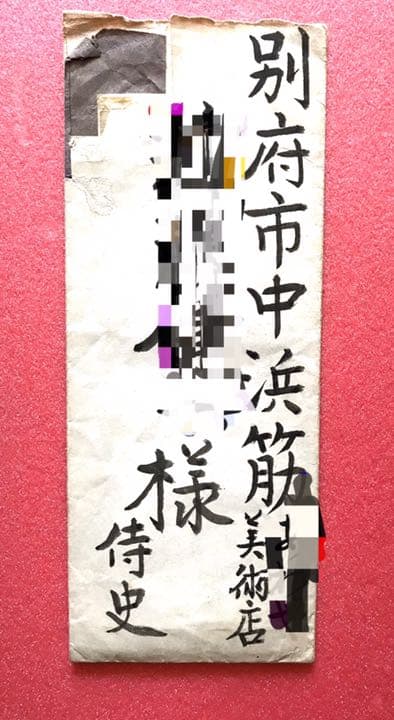 別府市中浜筋
美術店
様
侍史